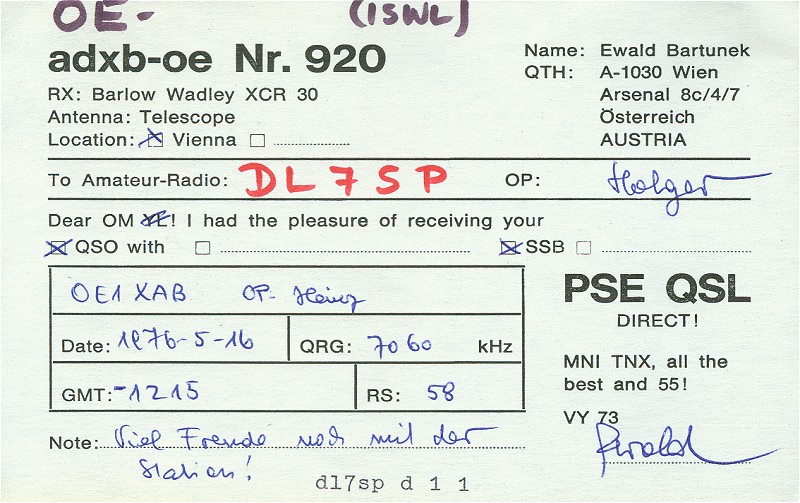 OE- (ISWL)
adxb-oe Nr. 920
Name: Ewald Bartunek
RX: Barlow Wadley XCR 30
QTH: A-1030 Wien
Antenna: Telescope
Arsenal 8c/4/7
Location: Vienna
Österreich
AUSTRIA
To Amateur-Radio: DL7SP OP: Holger
Dear OM YL! I had the pleasure of receiving your
QSO with SSB
OE1XAB OP- Heinz
Date: 1976-5-16 QRG: 7060 kHz
GMT: -1215 RS: 58
PSE QSL
DIRECT!
MNI TNX, all the
best and 55!
VY 73
Ewald
Note: Viel Freude noch mit der
Station!
dl7sp d 1 1